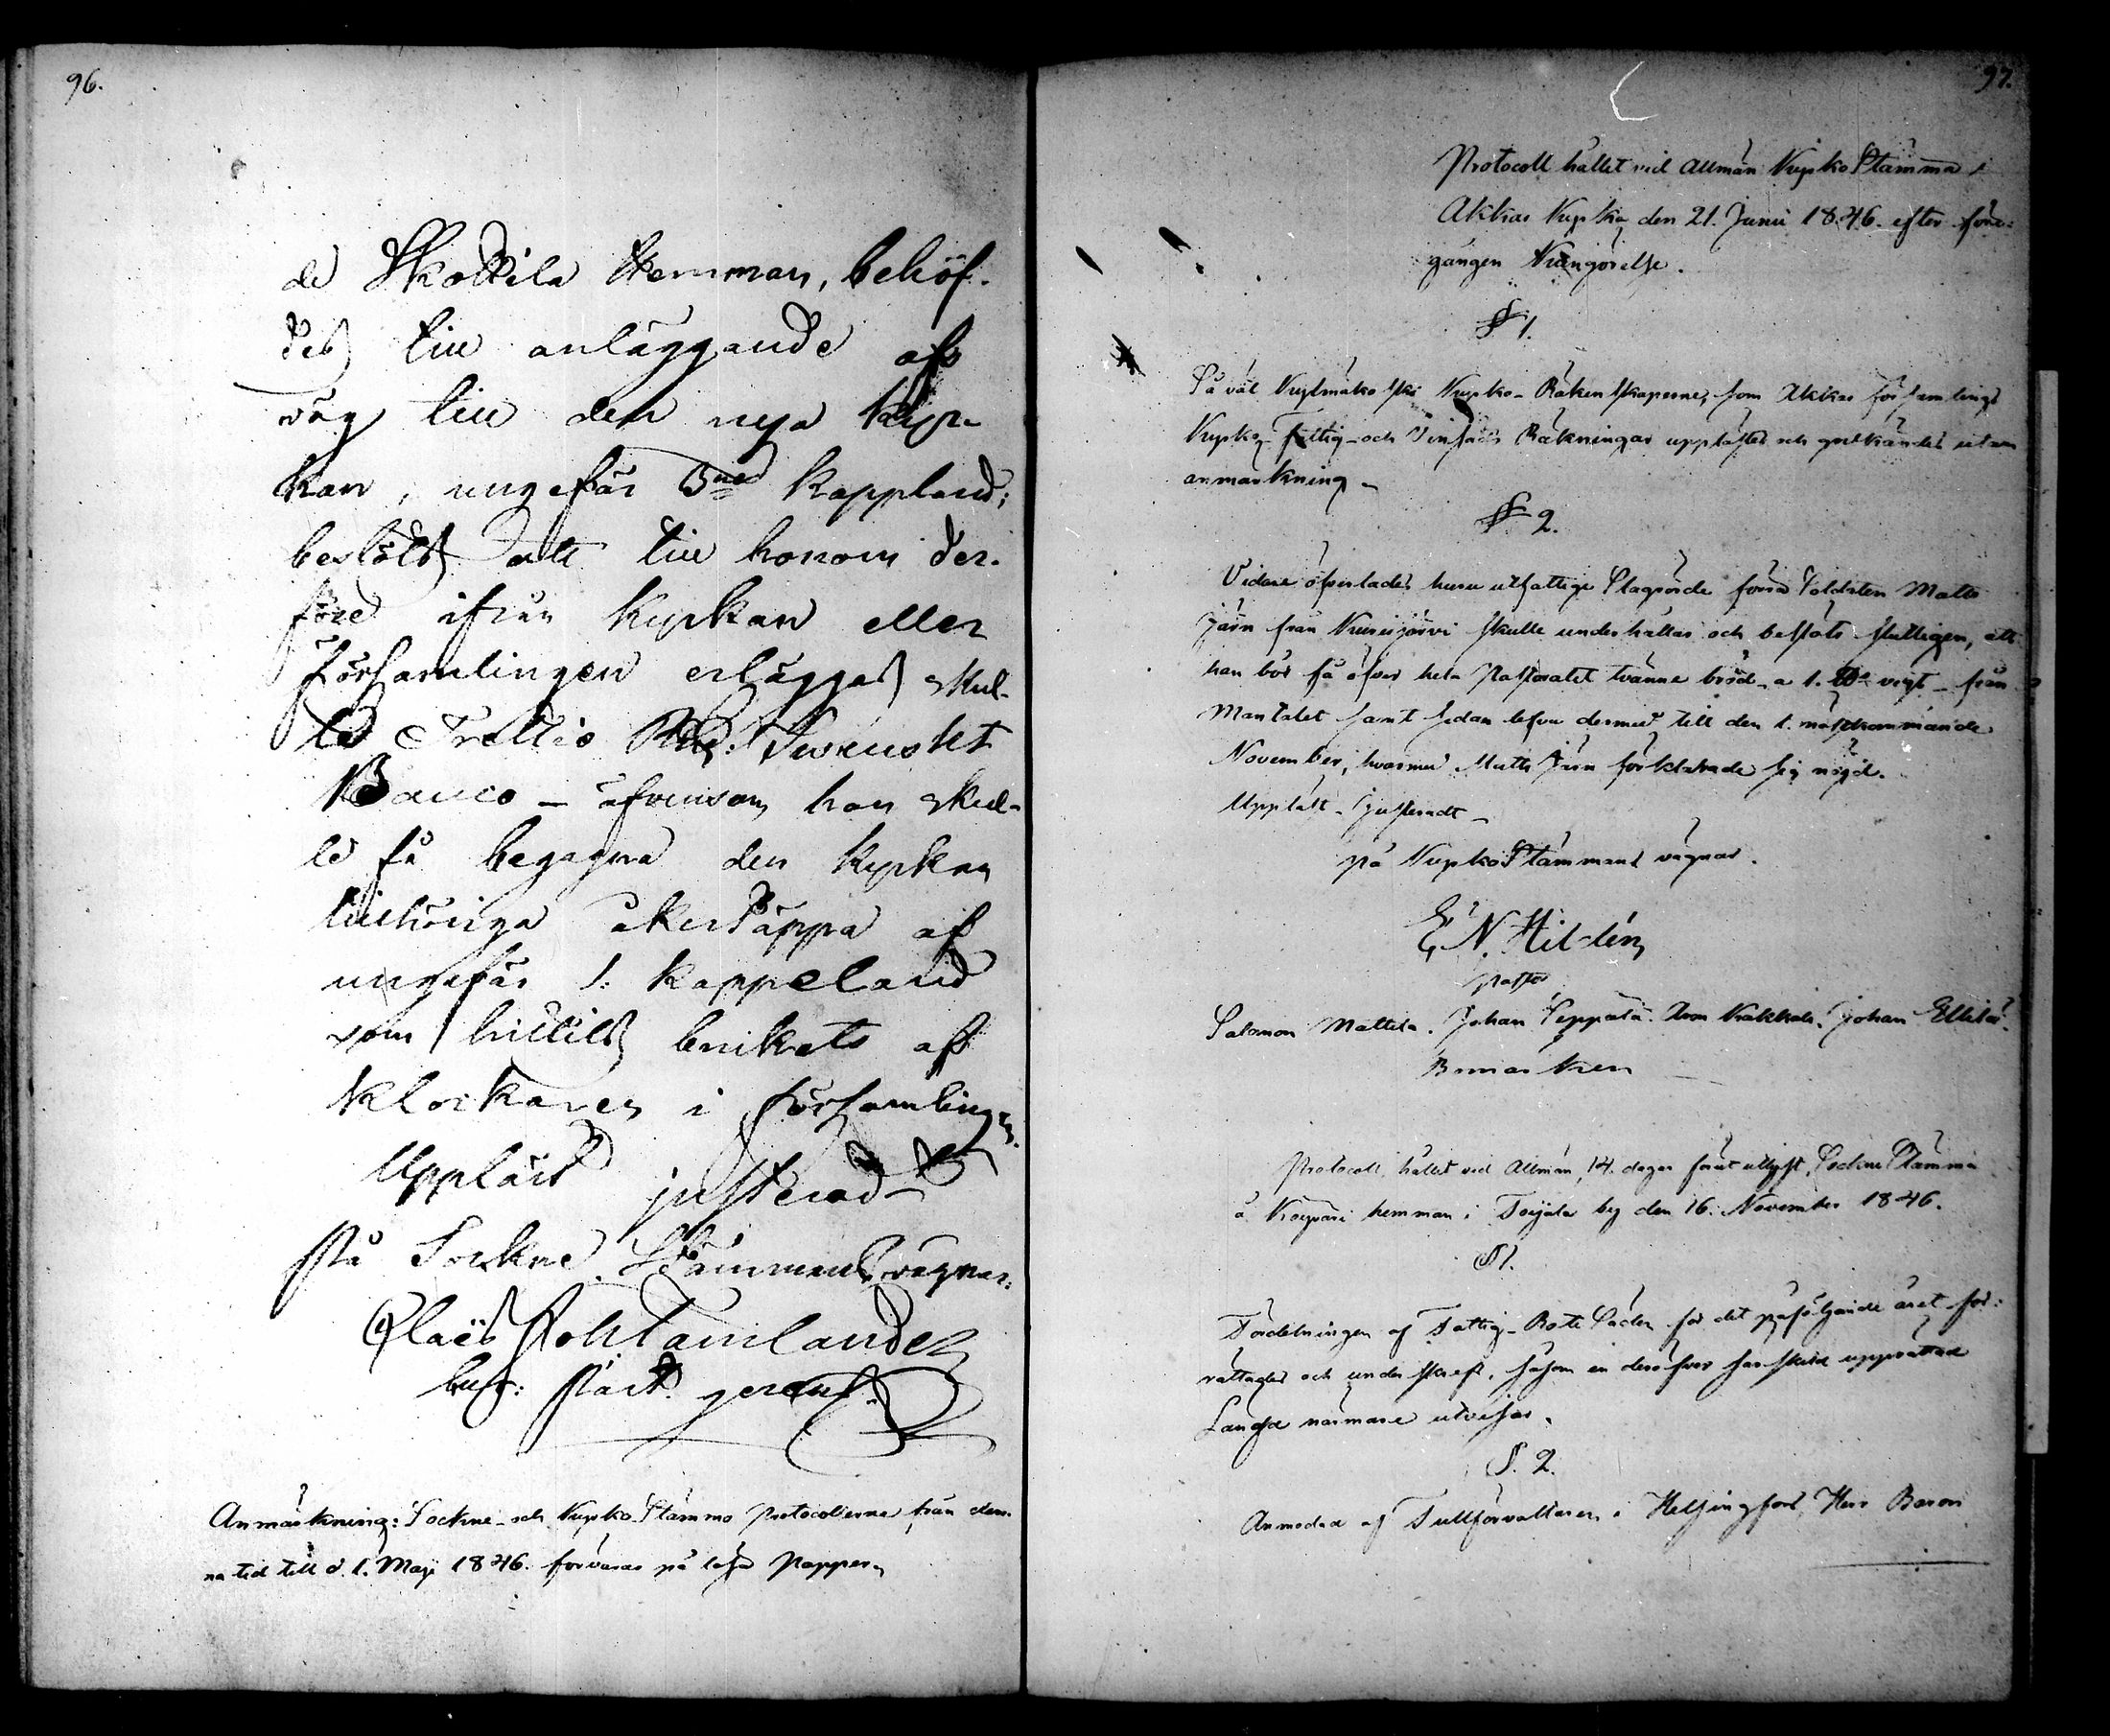 96.
de Skottila Hemman, behöf-
des till anläggande af
väg till den nya kyr-
kan, ungefär kappland;
beslöts att till honom der-
före ifrån kyrkan eller
Församlingen erlägges skul-
le Trettio Rdr: Svenskt
Banco – äfvensom han skul-
le få begagna den kyrkan
tillhöriga åkertäppa af
ungefär 1. kappeland
som hittils brukats af
klockaren i församlingen.
Uppläst justerad
På Sockne Stämmans vägnar:
Claës Joh Tamlander
Past.
Anmärkning: Sockne- och Kyrko Stämmo Protocollerne från den-
na tid till d. 1. Maji 1846. förvaras på lösa Papper.
97.
Protocoll hållet vid allmän Kyrko Stämma i
Akkas Kyrka den 21. Junii 1846. efter före-
gången Kungörelse.
§ 1.
Så väl Kylmäkoski Kyrko-Räkenskaperne, som Akkas församlings
Kyrko- Fattig- och Räkningar upplästes och godkändes utan
anmärkning.
§ 2.
Vidare öfverlades huru utfattige Slagrörde förra Soldaten Matts
Järn från Kurisjärvi skulle underhållas och beslöts slutligen, att
han bör få öfver hela Pastoratet tvänne bröd a 1. vigt från
Mantalet samt sedan lefva dermed till den 1. nästkommande
November, hvarmed Matts Järn förklarade sig nöjd.
Uppläst Justeradt
på KyrkoStämmans vägnar.
E. N. Hildén
Pastor
Salomon Mattila. Johan Seppälä. Kakkala. Johan Ellilä.
Bomärken
Protocoll, hållet vid allmän, 14. dagar förut utlyst, Sockne Stämma
å hemman i Toijala by den 16. November 1846.
§ 1.
Fördelningen af Fattig-Rote Säden för det påföljande året för-
rättades och underskrefs, såsom en deröfver särskild upprättad
Längd närmare utvisar.
§. 2.
Anmodad af Tullförvaltaren i Helsingfors, Herr Baron